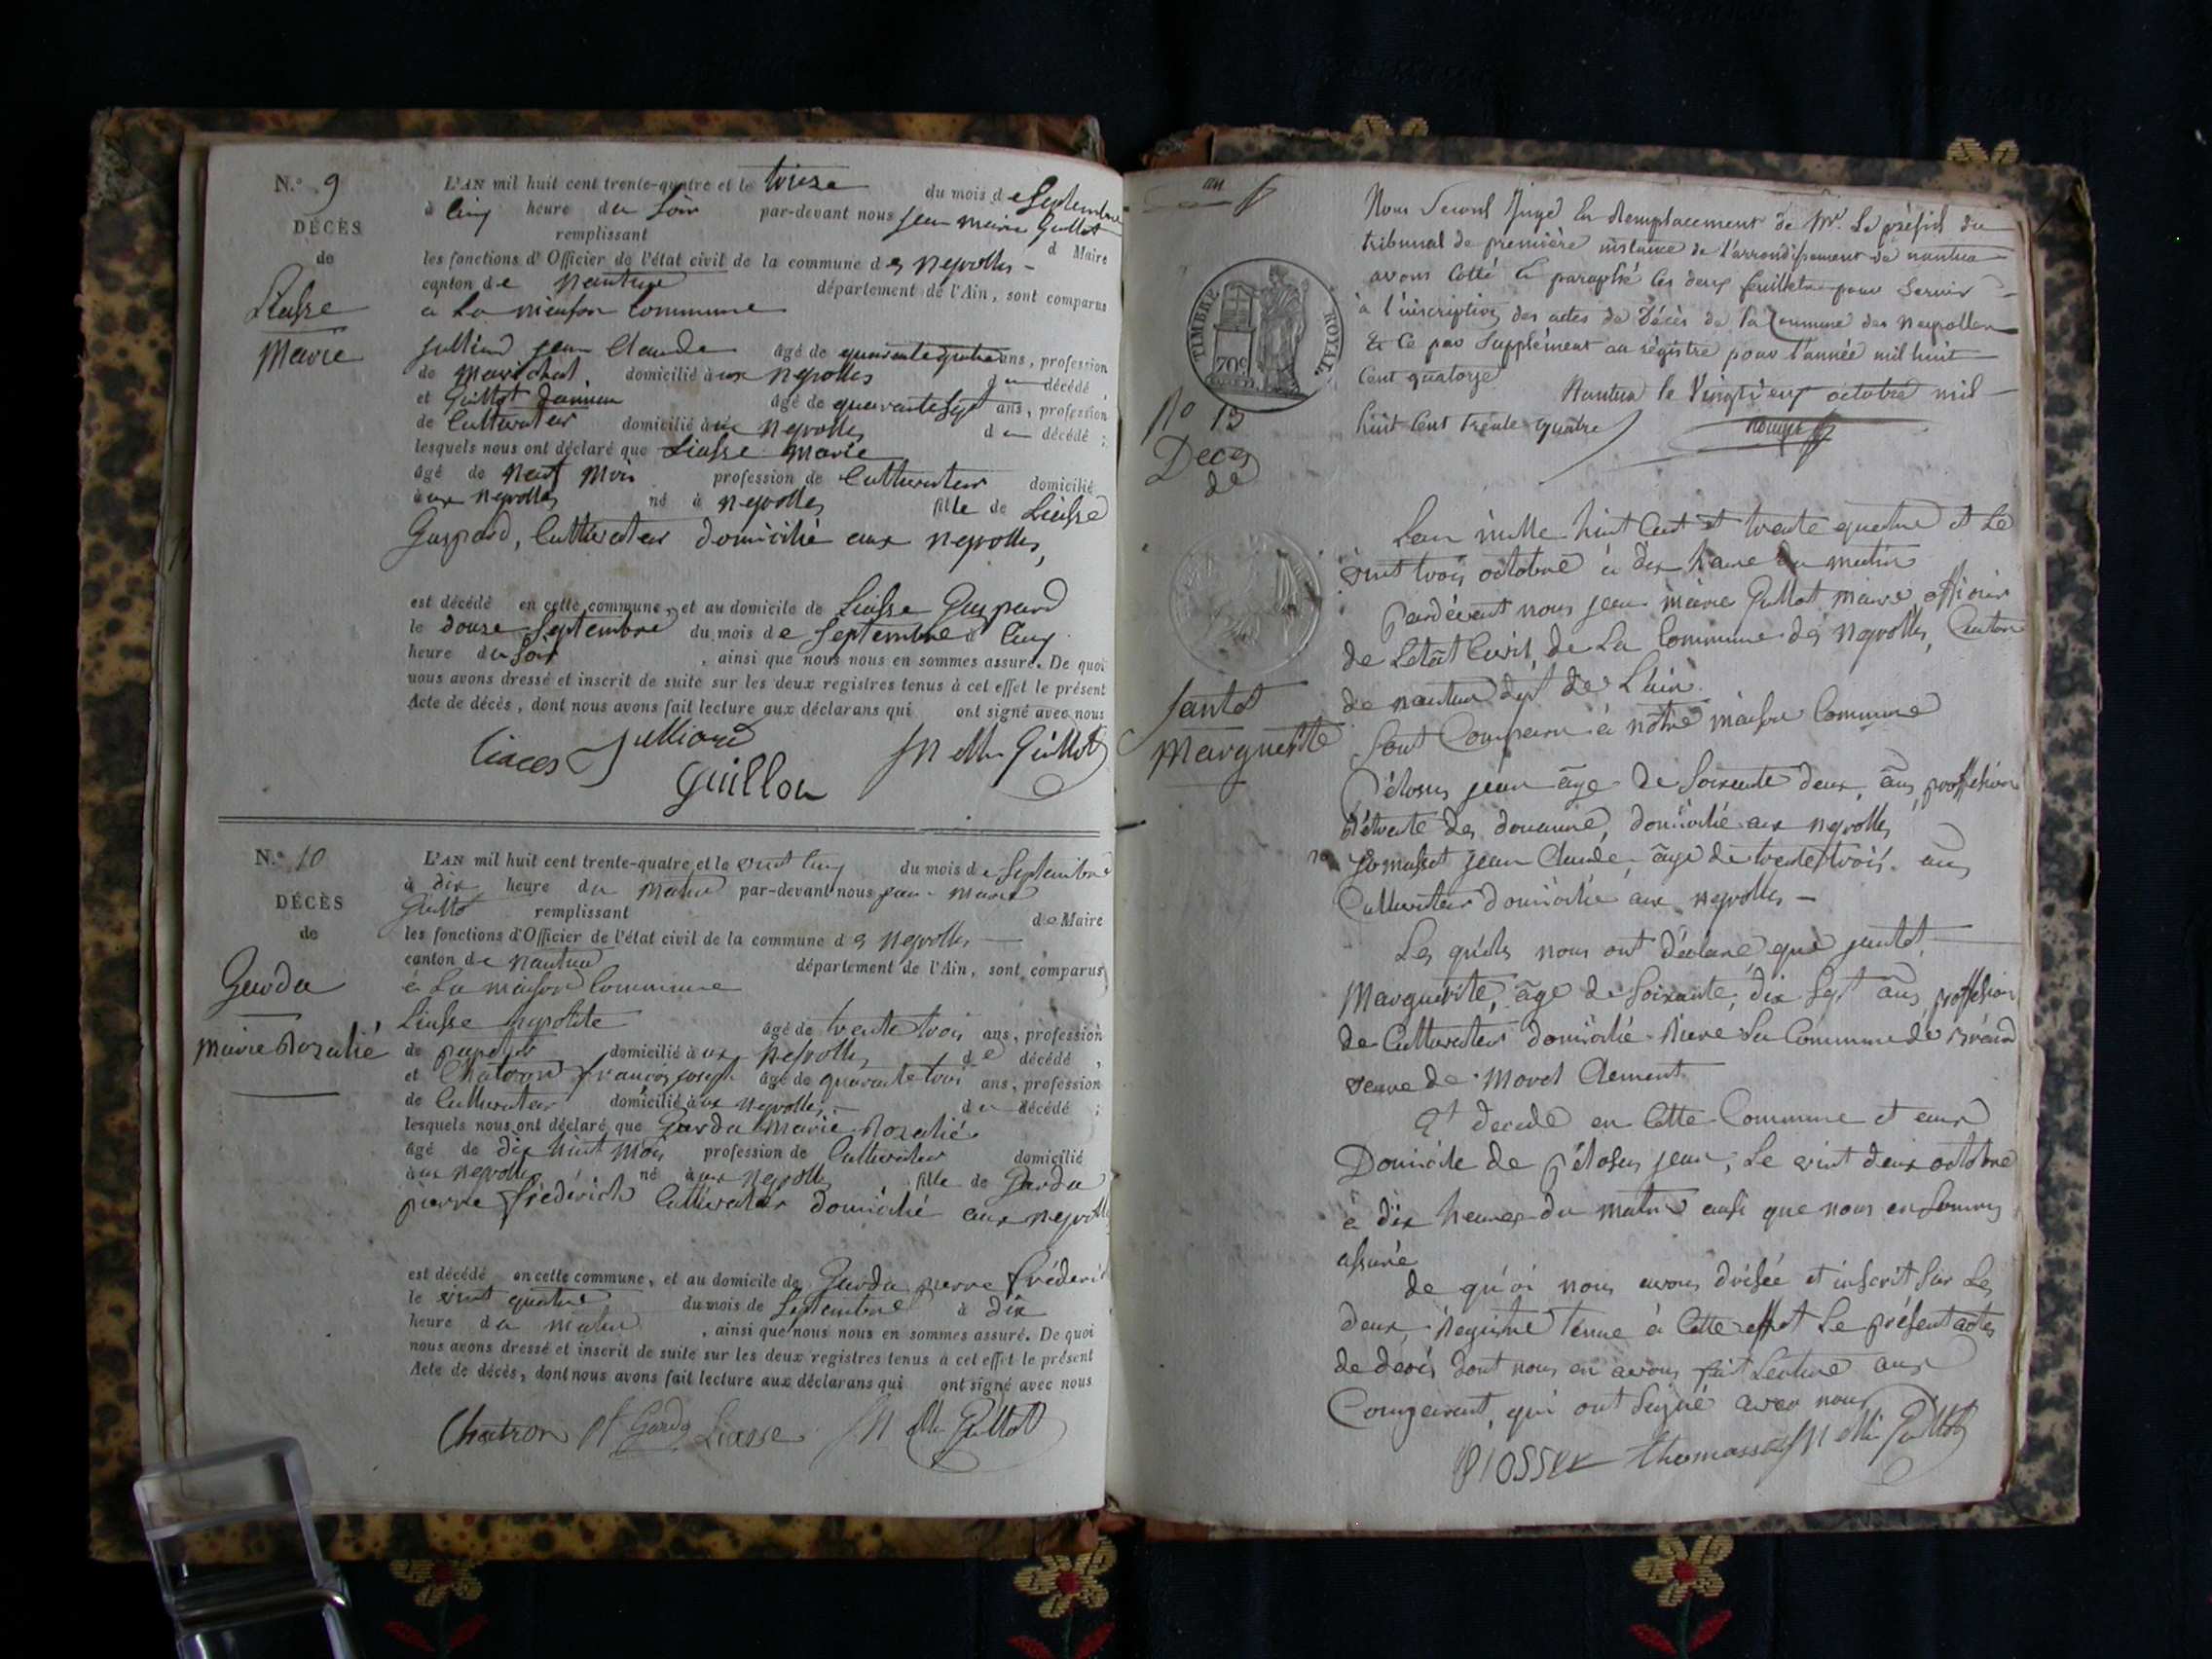 N.° 9
DÉCÈS
de
Liasse
Marie
L'AN mil huit cent trente-quatre et le treize du mois de Septembre
à cinq heure du Soir par-devant nous jean marie Guillot
remplissant d Maire
les fonctions d'Officier de l'état civil de la commune des neyrolles
canton de nantua département de l'Ain, sont comparus
a La maison Commune
Julliard jean Claude âgé de quarante quatre ans, profession
de Marichal domicilié aux neyrolles du décédé,
et Guillot âgé de quarante Sept ans, profession
de Cultivateur domicilié aux neyrolles du décédé;
lesquels nous ont déclaré que Liasse Marie
âgé de neuf mois profession de Cultivateur domicilié
aux neyrolles né à neyrolles fille de Liasse
Gaspard, Cultivateur domicilié aux neyrolles,
est décédé en cette commune, et au domicile de Liasse Gaspard
le douse Septembre du mois de Septembre à Cinq
heure du Soir, ainsi que nous nous en sommes assuré. De quoi
nous avons dressé et inscrit de suite sur les deux registres tenus à cet effet le présent
Acte de décès, dont nous avons fait lecture aux déclarans qui ont signé avec nous
Liaces Julliard Guillot
Guillou
N.° 10
DÉCÈS
de
Garda
Marie Rozalié
L'AN mil huit cent trente-quatre et le vint cinq du mois de Septembre
à dix heure du matin par-devant nous jean marie
Guillot remplissant de Maire
les fonctions d'Officier de l'état civil de la commune des neyrolles
canton de nantua département de l'Ain, sont comparus
à La maison Commune
Liasse hypolite âgé de trente trois ans, profession
de domicilié aux neyrolles de décédé,
et Chatron françois joseph âgé de quarante trois ans, profession
de Cultivateur domicilié aux neyrolles du décédé;
lesquels nous ont déclaré que Garda Marie Rozalié
âgé de dix huit mois profession de Cultivateur domicilié
aux neyrolles né aux neyrolles fille de Garda
pierre fréderich Cultivateur domicilié aux neyrolles
est décédé en cette commune, et au domicile de Garda pierre fréderic
le vint quatre du mois de Septembre à dix
heure du matin, ainsi que nous nous en sommes assuré. De quoi
nous avons dressé et inscrit de suite sur les deux registres tenus à cet effet le présent
Acte de décès, dont nous avons fait lecture aux déclarans qui ont signé avec nous
Chatron pf Garda Liasse Guillot
Nous Second Juge En Remplacement de Mr. Le présid du
tribunal de première instance de l'arrondissement de nantua
avons Cotté Et paraphé les deux feuillets pour Servir
à l'inscription des actes de Décès de la Commune des neyrolles
Et Ce par Supplément au régistre pour l'année mil huit
Cent quatorze Nantua le Vingt octobre mil
huit Cent trente quatre
TIMBRE ROYAL.
70c
No 13
Deces
de
Jantet
Marguerite
Lan mille huit Cent et trente quatre et Le
vint trois octobre à dix heure du matin
Pardévant nous jean marie Guillot maire officier
de Letat Civil, de La Commune des neyrolles, Canton
de nantua dept de L'ain.
Sont Comparu à notre maison Commune
jean âge de Soixante deux, ans, proffesion
Rétraite des douanne, domicilié aux neyrolles
jean Claude, âge de trente trois ans
Cultivateur domicilié aux neyrolles –
Les quels nous ont déclaré que jantet
Marguerite, âge de Soixante, dix Sept ans, proffesion
de Cultivateur domicilié Sa Commune de
veuve de Morel Clement
Et decede en Cette Commune et aux
Domicile de jean, Le vint deux octobre
à dix heures du matin ausi que nous en Sommes
assuré
de qu'oi nous avons drésée et inscrit Sur Les
deux, Régistre Tenue à Cette effet Le présent actes
de deces dont nous en avons fait Lecture aux
Comparant, qui ont Signé avec nous
thomasset Guillot